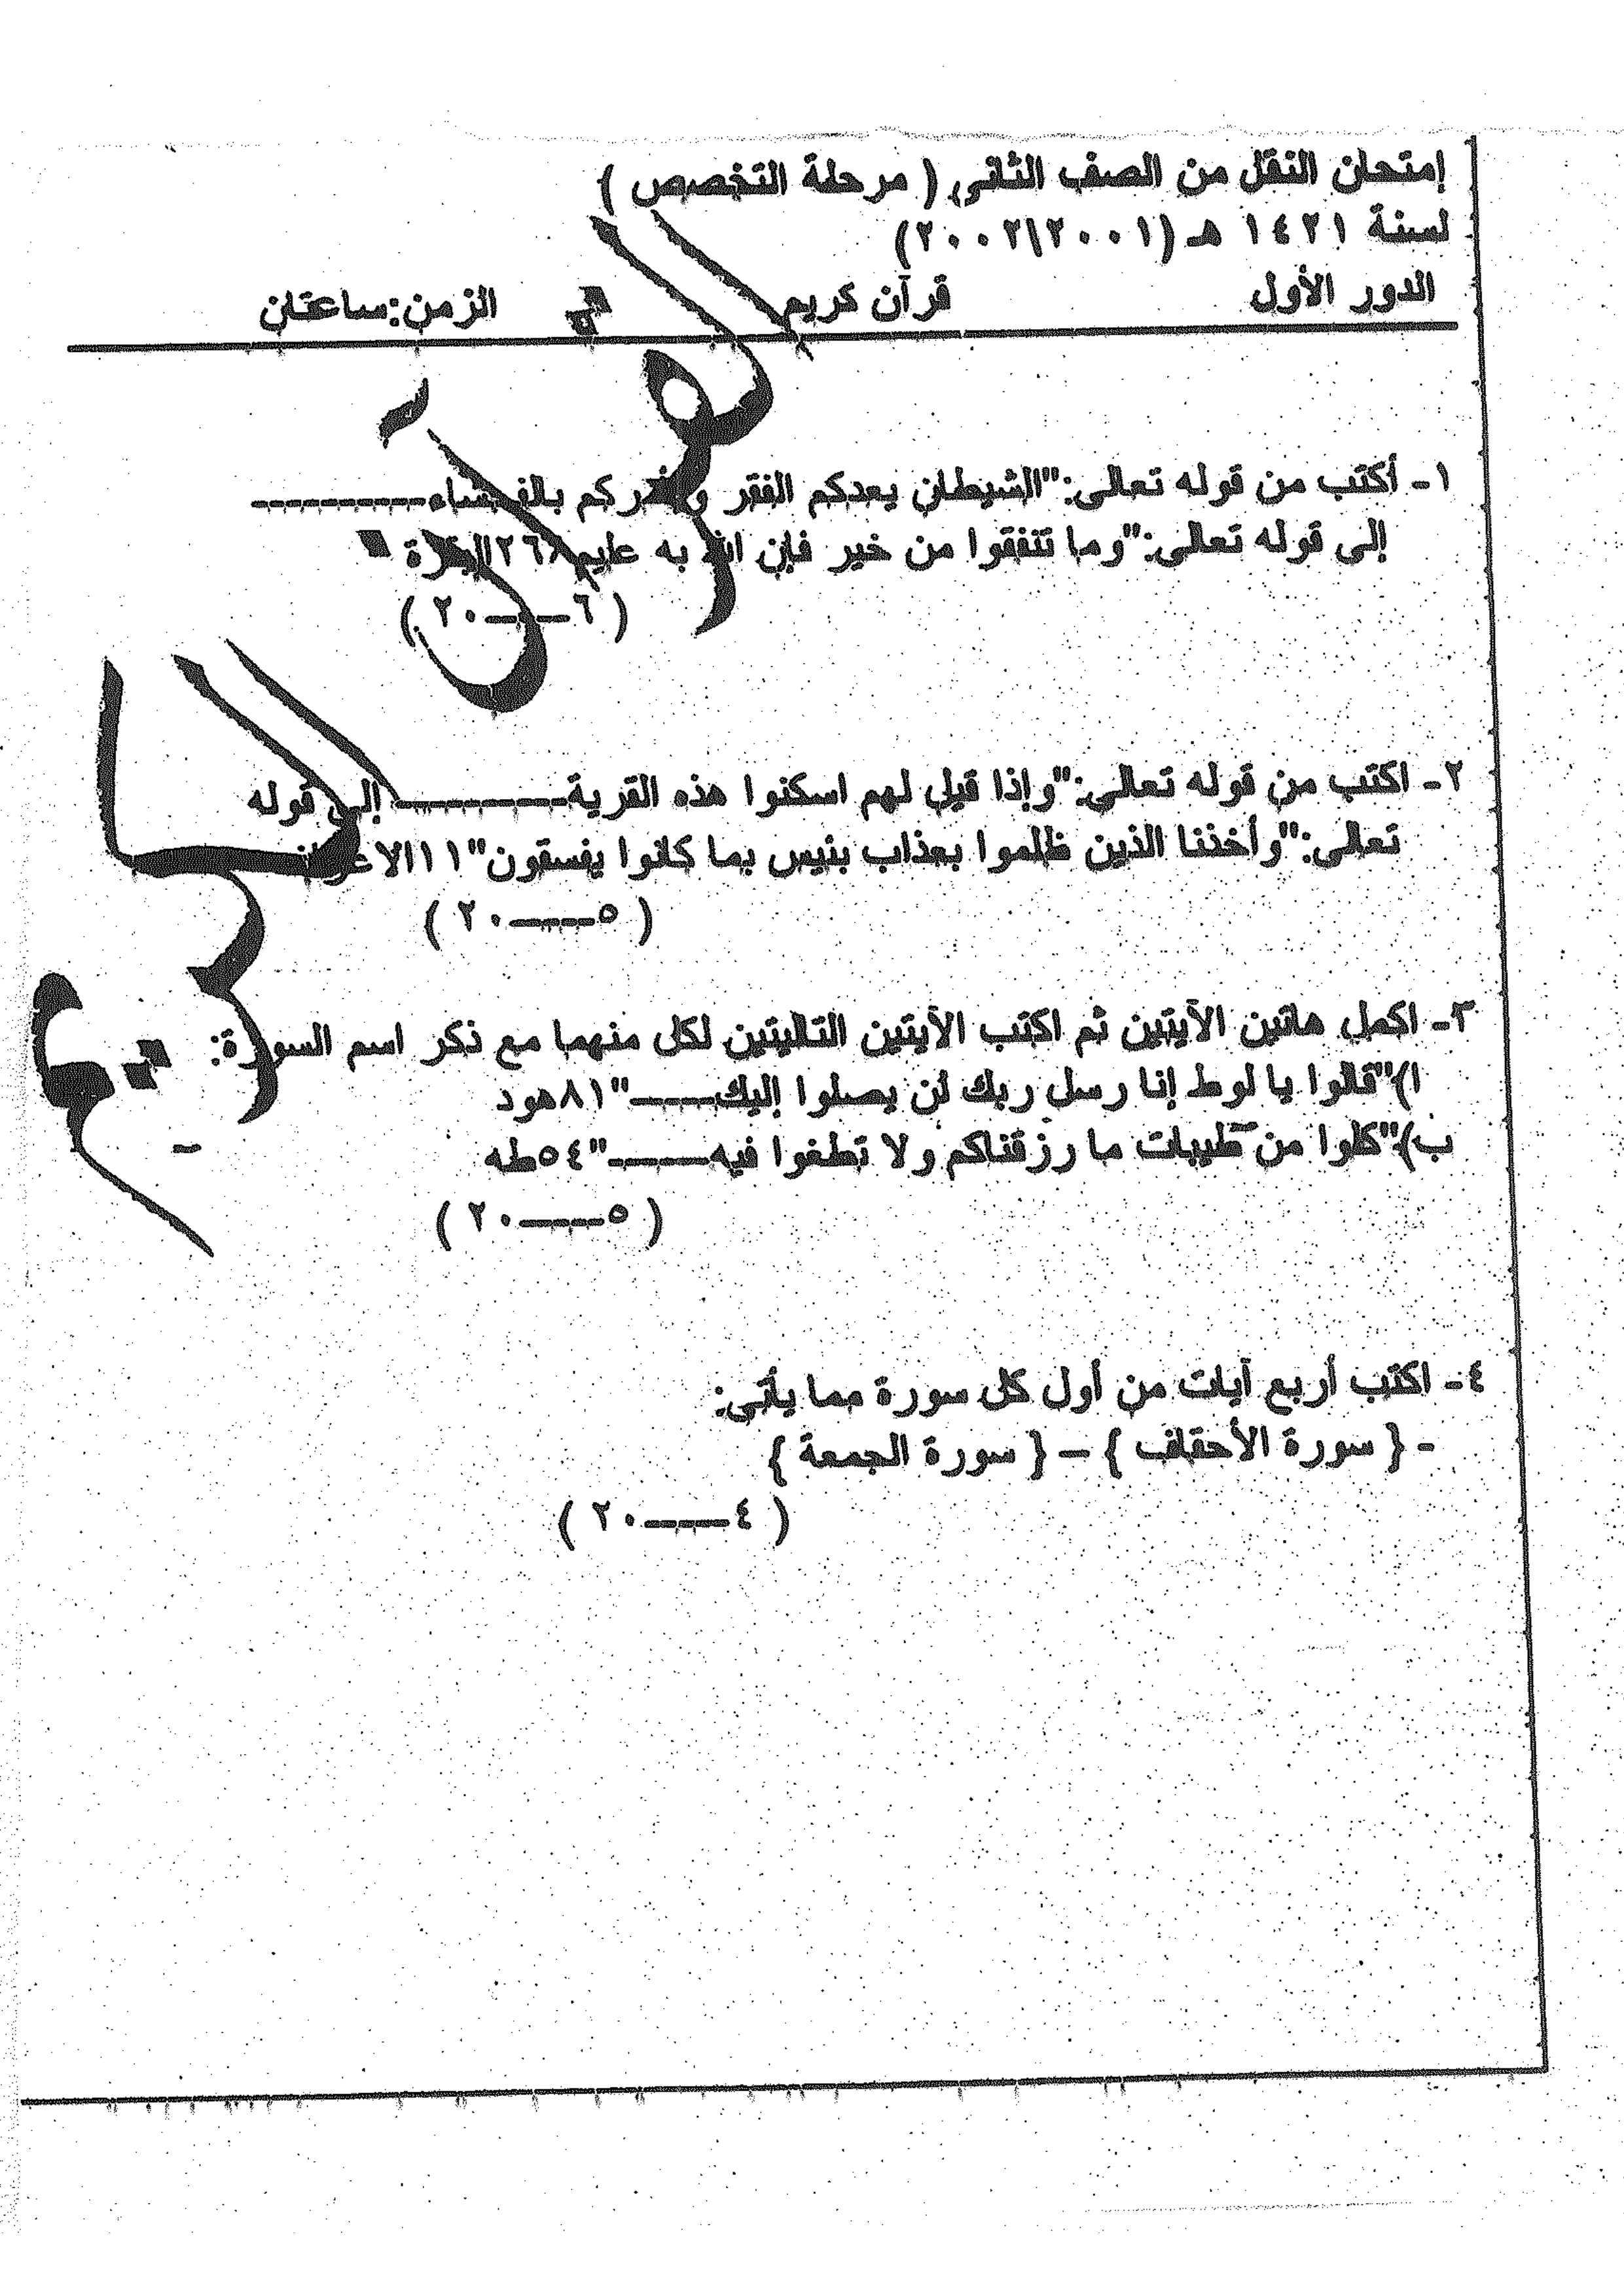 إمتحان النقل من الصف الثانى ( مرحلة التخصص )
لسنة ١٤٢١ هـ (٢٠٠١\٢٠٠٢)
الدور الأول قرآن كريم الزمن:ساعتان
القرآن الكريم
١- أكتب من قوله تعالى:"الشيطان يعدكم الفقر ويأمركم بالفحشاء----------
إلى قوله تعالى:"وما تنفقوا من خير فإن الله به عليم ٢٦٨البقرة
( ٦-----٢٠ )
٢- اكتب من قوله تعالى:"وإذا قيل لهم اسكنوا هذه القرية---------- إلى قوله
تعالى:"وأخذنا الذين ظلموا بعذاب بئيس بما كانوا يفسقون"١١الاعراف
( ٥-----٢٠ )
٣- اكمل هاتين الآيتين ثم اكتب الآيتين التاليتين لكل منهما مع ذكر اسم السورة:
ا)"قالوا يا لوط إنا رسل ربك لن يصلوا إليك-----"٨١هود
ب)"كلوا من طيبات ما رزقناكم ولا تطغوا فيه------"٥٤طه
( ٥-----٢٠ )
٤- اكتب أربع آيات من أول كل سورة مما يأتى:
- { سورة الأحقاف } – { سورة الجمعة }
( ٤-----٢٠ )